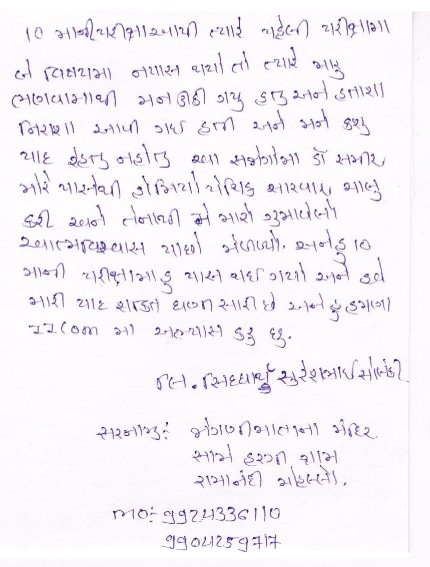 10 માની પરીક્ષા આપી ત્યારે પહેલી પરીક્ષામા
બે વિષયમા નપાસ થયો તો ત્યારે મારુ
ભણવામાથી મન ઉઠી ગયુ હતુ અને હતાશા
નિરાશા આવી ગઈ હતી અને મને કશુ
યાદ રહેતુ નહોતુ આ સંજોગોમા ડૉ સમીર
મોરે પાસેથી હોમિયોપેથિક સારવાર ચાલુ
કરી અને તેનાથી મે મારો ગુમાવેલો
આત્મવિશ્વાસ પાછો મેળવ્યો. અને હુ 10
માની પરીક્ષામા હુ પાસ થઈ ગયો અને હવે
મારી યાદ શક્તિ ઘણી સારી છે અને હુ હમણા
IICom મા અભ્યાસ કરુ છુ.
લિ. સિધ્ધાર્થ સુરેશભાઈ સોલંકી
સરનામુ: મેગણીમાતાના મંદિર
સામે હરણી ગામ
રામાનંદી મોહલ્લો.
MO:- 9924336110
9904259717